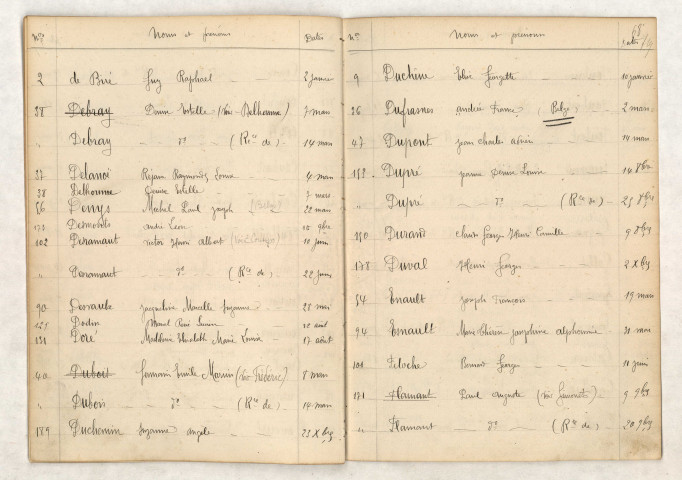 Nos Noms et prénoms Dates
2 de Biré Guy Raphaël 2 janvier
38 Debray Denise Estelle (Voir Delhomme) 7 mars
" Debray do (Rce de) 14 mars
37 Delanoi Raymonde Louise 4 mars
38 Delhomme Denise Estelle 7 mars
56 Denys Michel Paul Joseph (Belge) 22 mars
173 Desmonts André Léon
102 Deramaut Victor Henri Albert 10 juin
" Deramaut do (Rce de) 22 juin
90 Desraulx Jacqueline Marcelle Suzanne 28 mai
125 Dodin Marcel René 10 août
131 Doré Madeleine Elisabeth Marie Louise 17 août
40 Dubout Emile Marius (voir Frédéric) 8 mars
" Dubois do (Rce de) 14 mars
189 Duchemin Suzanne Angèle 23 Xbre
No Noms et prénoms Dates
68
9 Duchêne Elise Georgette 10 janvier
36 Dufrasnes Andrée France (Belge) 2 mars
47 Dupont Jean Charles 14 mars
152 Dupré Jeanne Denise Louise 14 8bre
" Dupré do (Rce de) 25 8bre
Durand Claude Georges Henri Camille 9 8bre
178 Duval Henri Georges 2 Xbre
54 Enault Joseph François 19 mars
94 Esnault Marie Thérèse Joséphine Alphonsine 31 mai
101 Feloche Bernard Georges 11 juin
171 Flamant Paul Auguste 9 9bre
" Flamant do (Rce de) 20 9bre